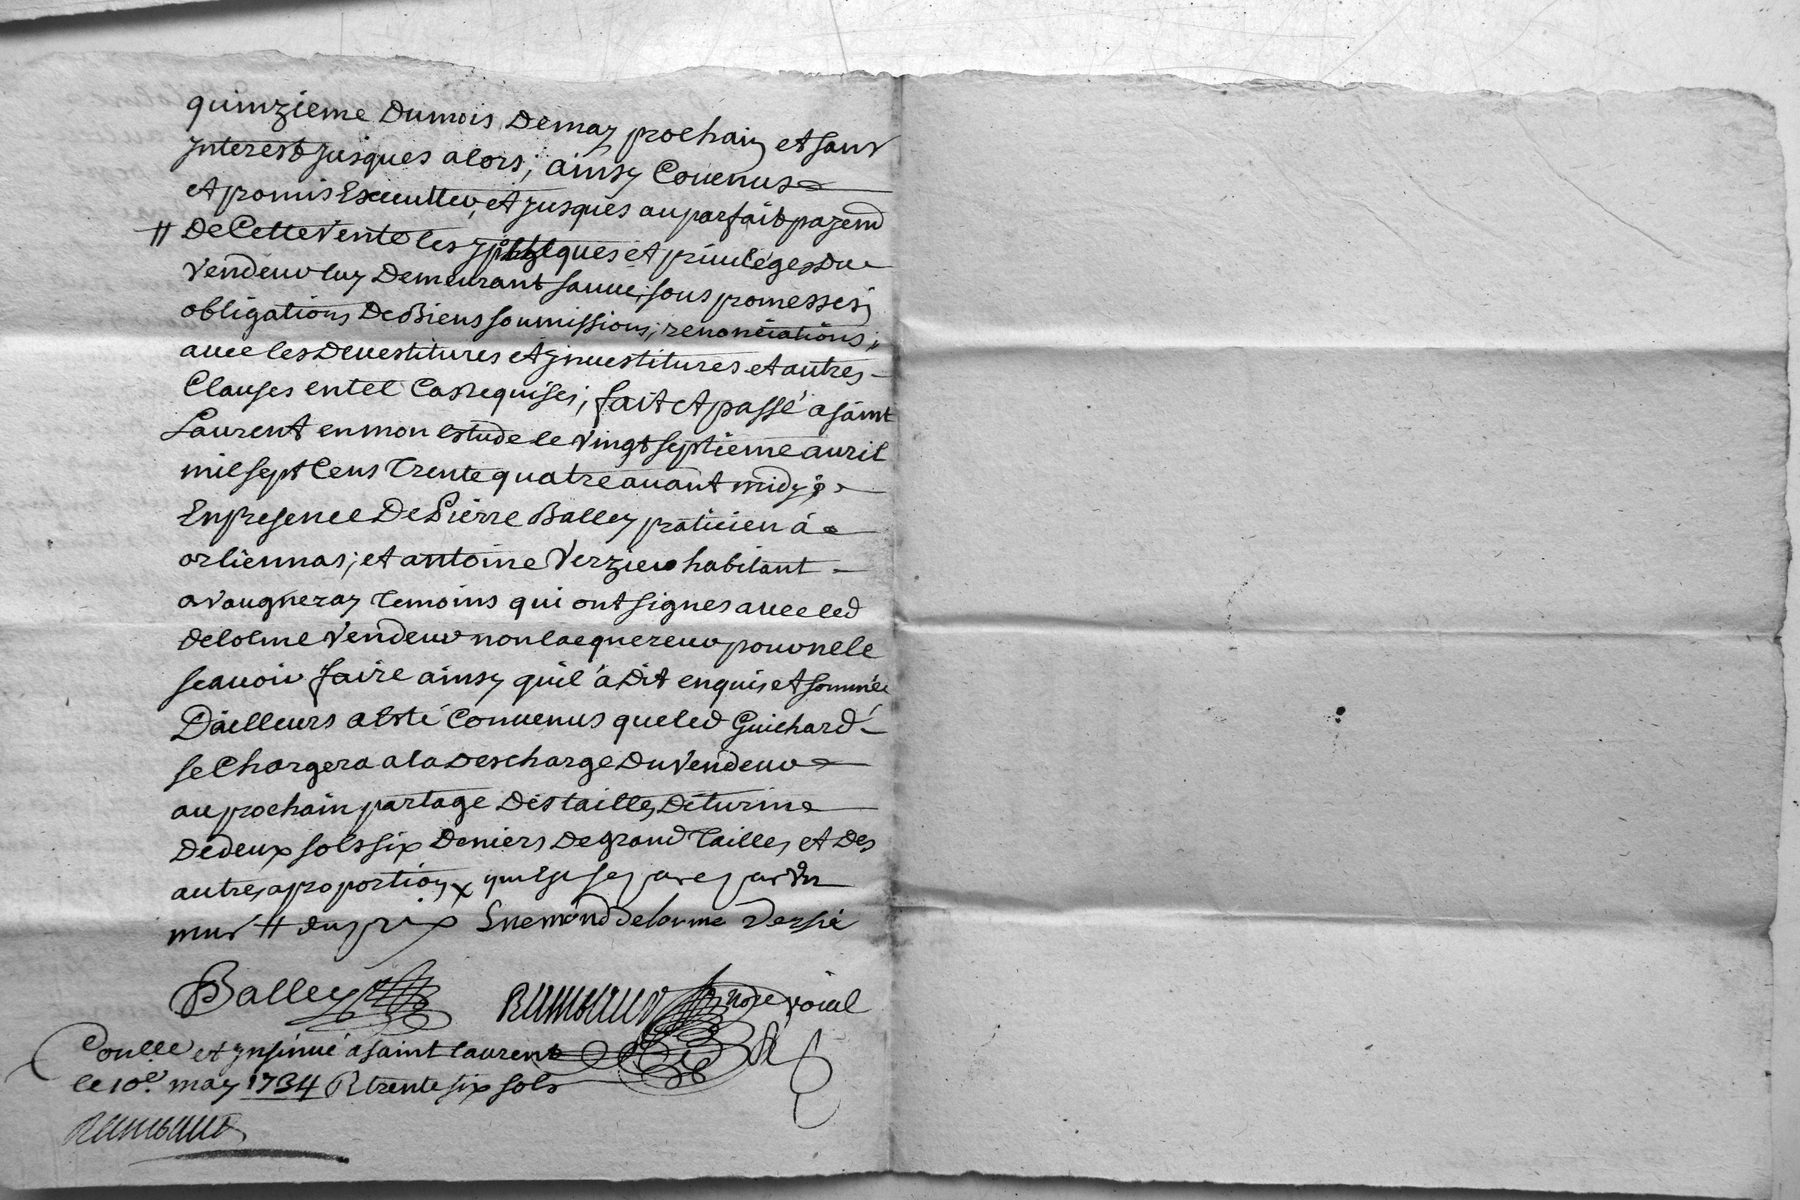 quinzieme Dumois Demay prochain et sans
Interest jusques alors; ainsy Convenus
et promis Executter, et jusques au parfait payem
# De Cette Vente les ypotheques et privileges Du
Vendeur luy Demeurant sauve; sous promesses;
obligations De Biens soumissions; renonciations;
avec les Devestitures et Investitures et autres
Clauses en tel Cas requises; fait et passé a saint
Laurent en mon estude le vingt septieme avril
mil sept Cens Trente quatre avant midy;
En presence De Pierre Balley praticien à
orliennas; et antoine Verzieu habitant
a vaugneray Temoins qui ont signes avec led
delolme Vendeur non lacquereur pour ne le
scavoir faire ainsy quil à Dit enquis et sommée
D'ailleurs a esté Convenus que led Guichard
se Chargera a la Descharge Du Vendeur
au prochain partage Des tailles De turine
De deux sols six Deniers De grand Tailles et Des
autres a proportion x
# du prix delorme Versié
Balley Rambaud nore royal
Conllé et Insinué a saint laurent
le 10e. may 1734 R trente six sols
Rambaud